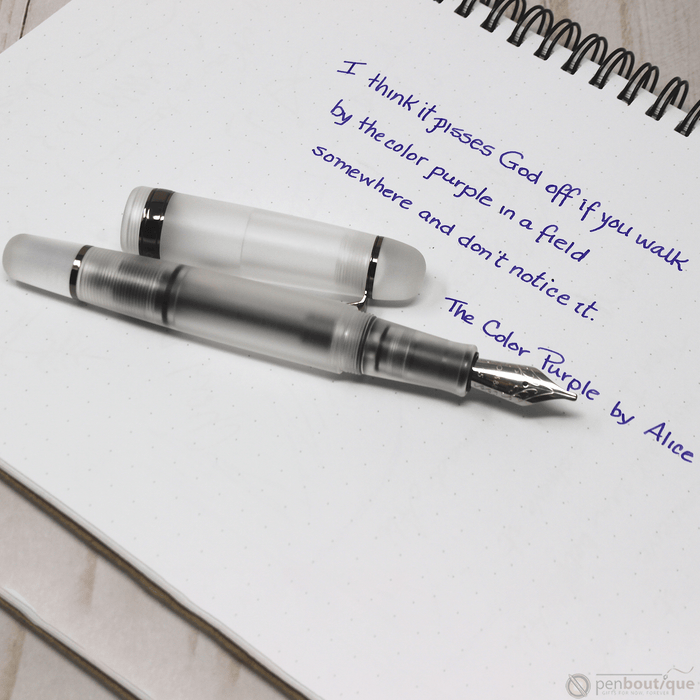 I think it pisses God off if you walk
by the color purple in a field
somewhere and don't notice it.
The Color Purple by Alice
penboutique